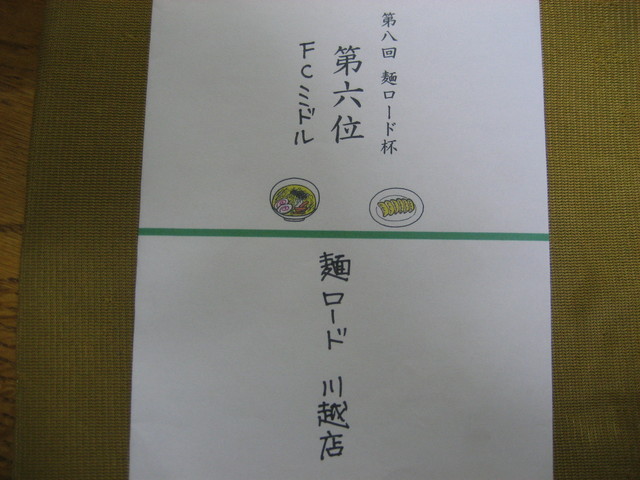 第八回 麺ロード杯
第六位
FCミドル
麺ロード 川越店